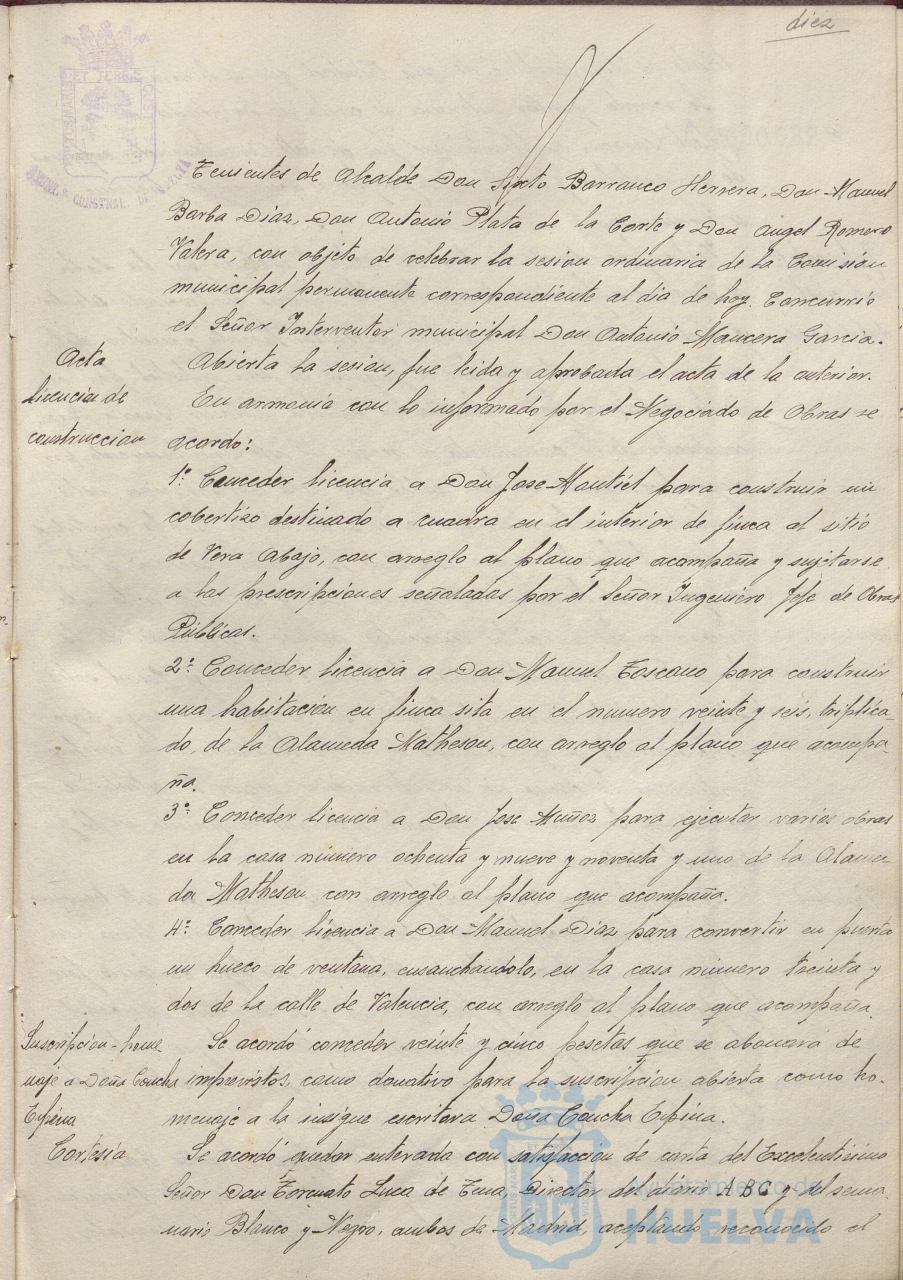 diez
Tenientes de Alcalde Don Sixto Barranco Herrera, Don Manuel
Barba Diaz, Don Antonio Plata de la Corte y Don Angel Romero
Valera, con objeto de celebrar la sesion ordinaria de la Comision
municipal permanente correspondiente al dia de hoy. Concurrió
el Señor Interventor municipal Don Antonio Mancera Garcia.
Acta
Abierta la sesion, fue leida y aprobada el acta de la anterior.
Licencia de
construccion
En armonia con lo informado por el Negociado de Obras se
acordo:
1º Conceder licencia a Don Jose Montiel para construir un
cobertizo destinado a cuadra en el interior de finca al sitio
de Vera Abajo, con arreglo al plano que acompaña y sujetarse
a las prescripciones señaladas por el Señor Ingeniero Jefe de Obras
Públicas.
2º Conceder licencia a Don Manuel Toscano para construir
una habitacion en finca sita en el numero veinte y seis, triplica-
do, de la Alameda Matheson, con arreglo al plano que acompa-
ña.
3º Conceder licencia a Don Jose Muñoz para ejecutar varias obras
en la casa numero ochenta y nueve y noventa y uno de la Alame-
da Matheson con arreglo al plano que acompaña.
4º Conceder licencia a Don Manuel Diaz para convertir en puerta
un hueco de ventana, ensanchandolo, en la casa numero treinta y
dos de la calle de Valencia, con arreglo al plano que acompaña.
Suscripcion-home
naje a Doña Concha
Espina
Se acordó conceder veinte y cinco pesetas que se abonará de
imprevistos, como donativo para la suscripcion abierta como ho-
menaje a la insigne escritora Doña Concha Espina.
Cortesía
Se acordó quedar enterada con satisfaccion de carta del Excelentisimo
Señor Don Torcuato Luca de Tena, Director del diario ABC y del sema
nario Blanco y Negro, ambos de Madrid, aceptando reconocido el
Ayuntamiento de
HUELVA